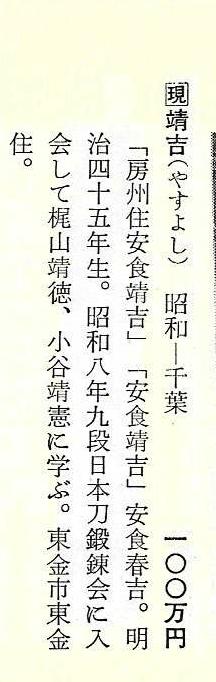 現 靖吉(やすよし) 昭和―千葉 一〇〇万円
「房州住安食靖吉」「安食靖吉」安食春吉。明
治四十五年生。昭和八年九段日本刀鍛錬会に入
会して梶山靖徳、小谷靖憲に学ぶ。東金市東金
住。